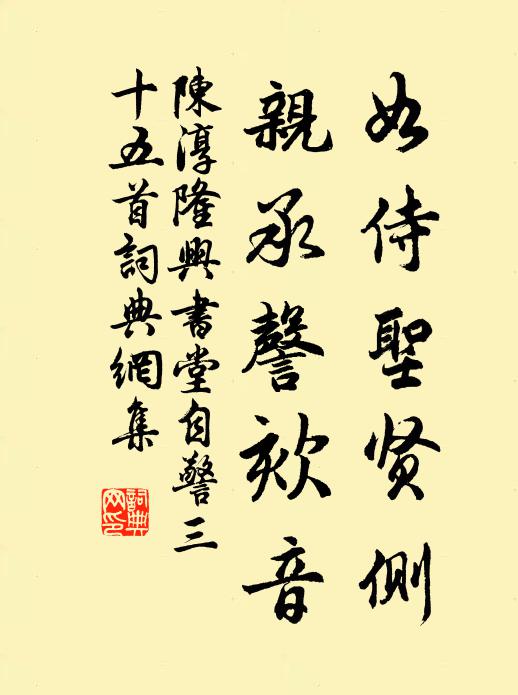 如侍聖贤側
親承謦欬音
陳淳隆興書堂自警三
十五首詞典網集
詞典
网印